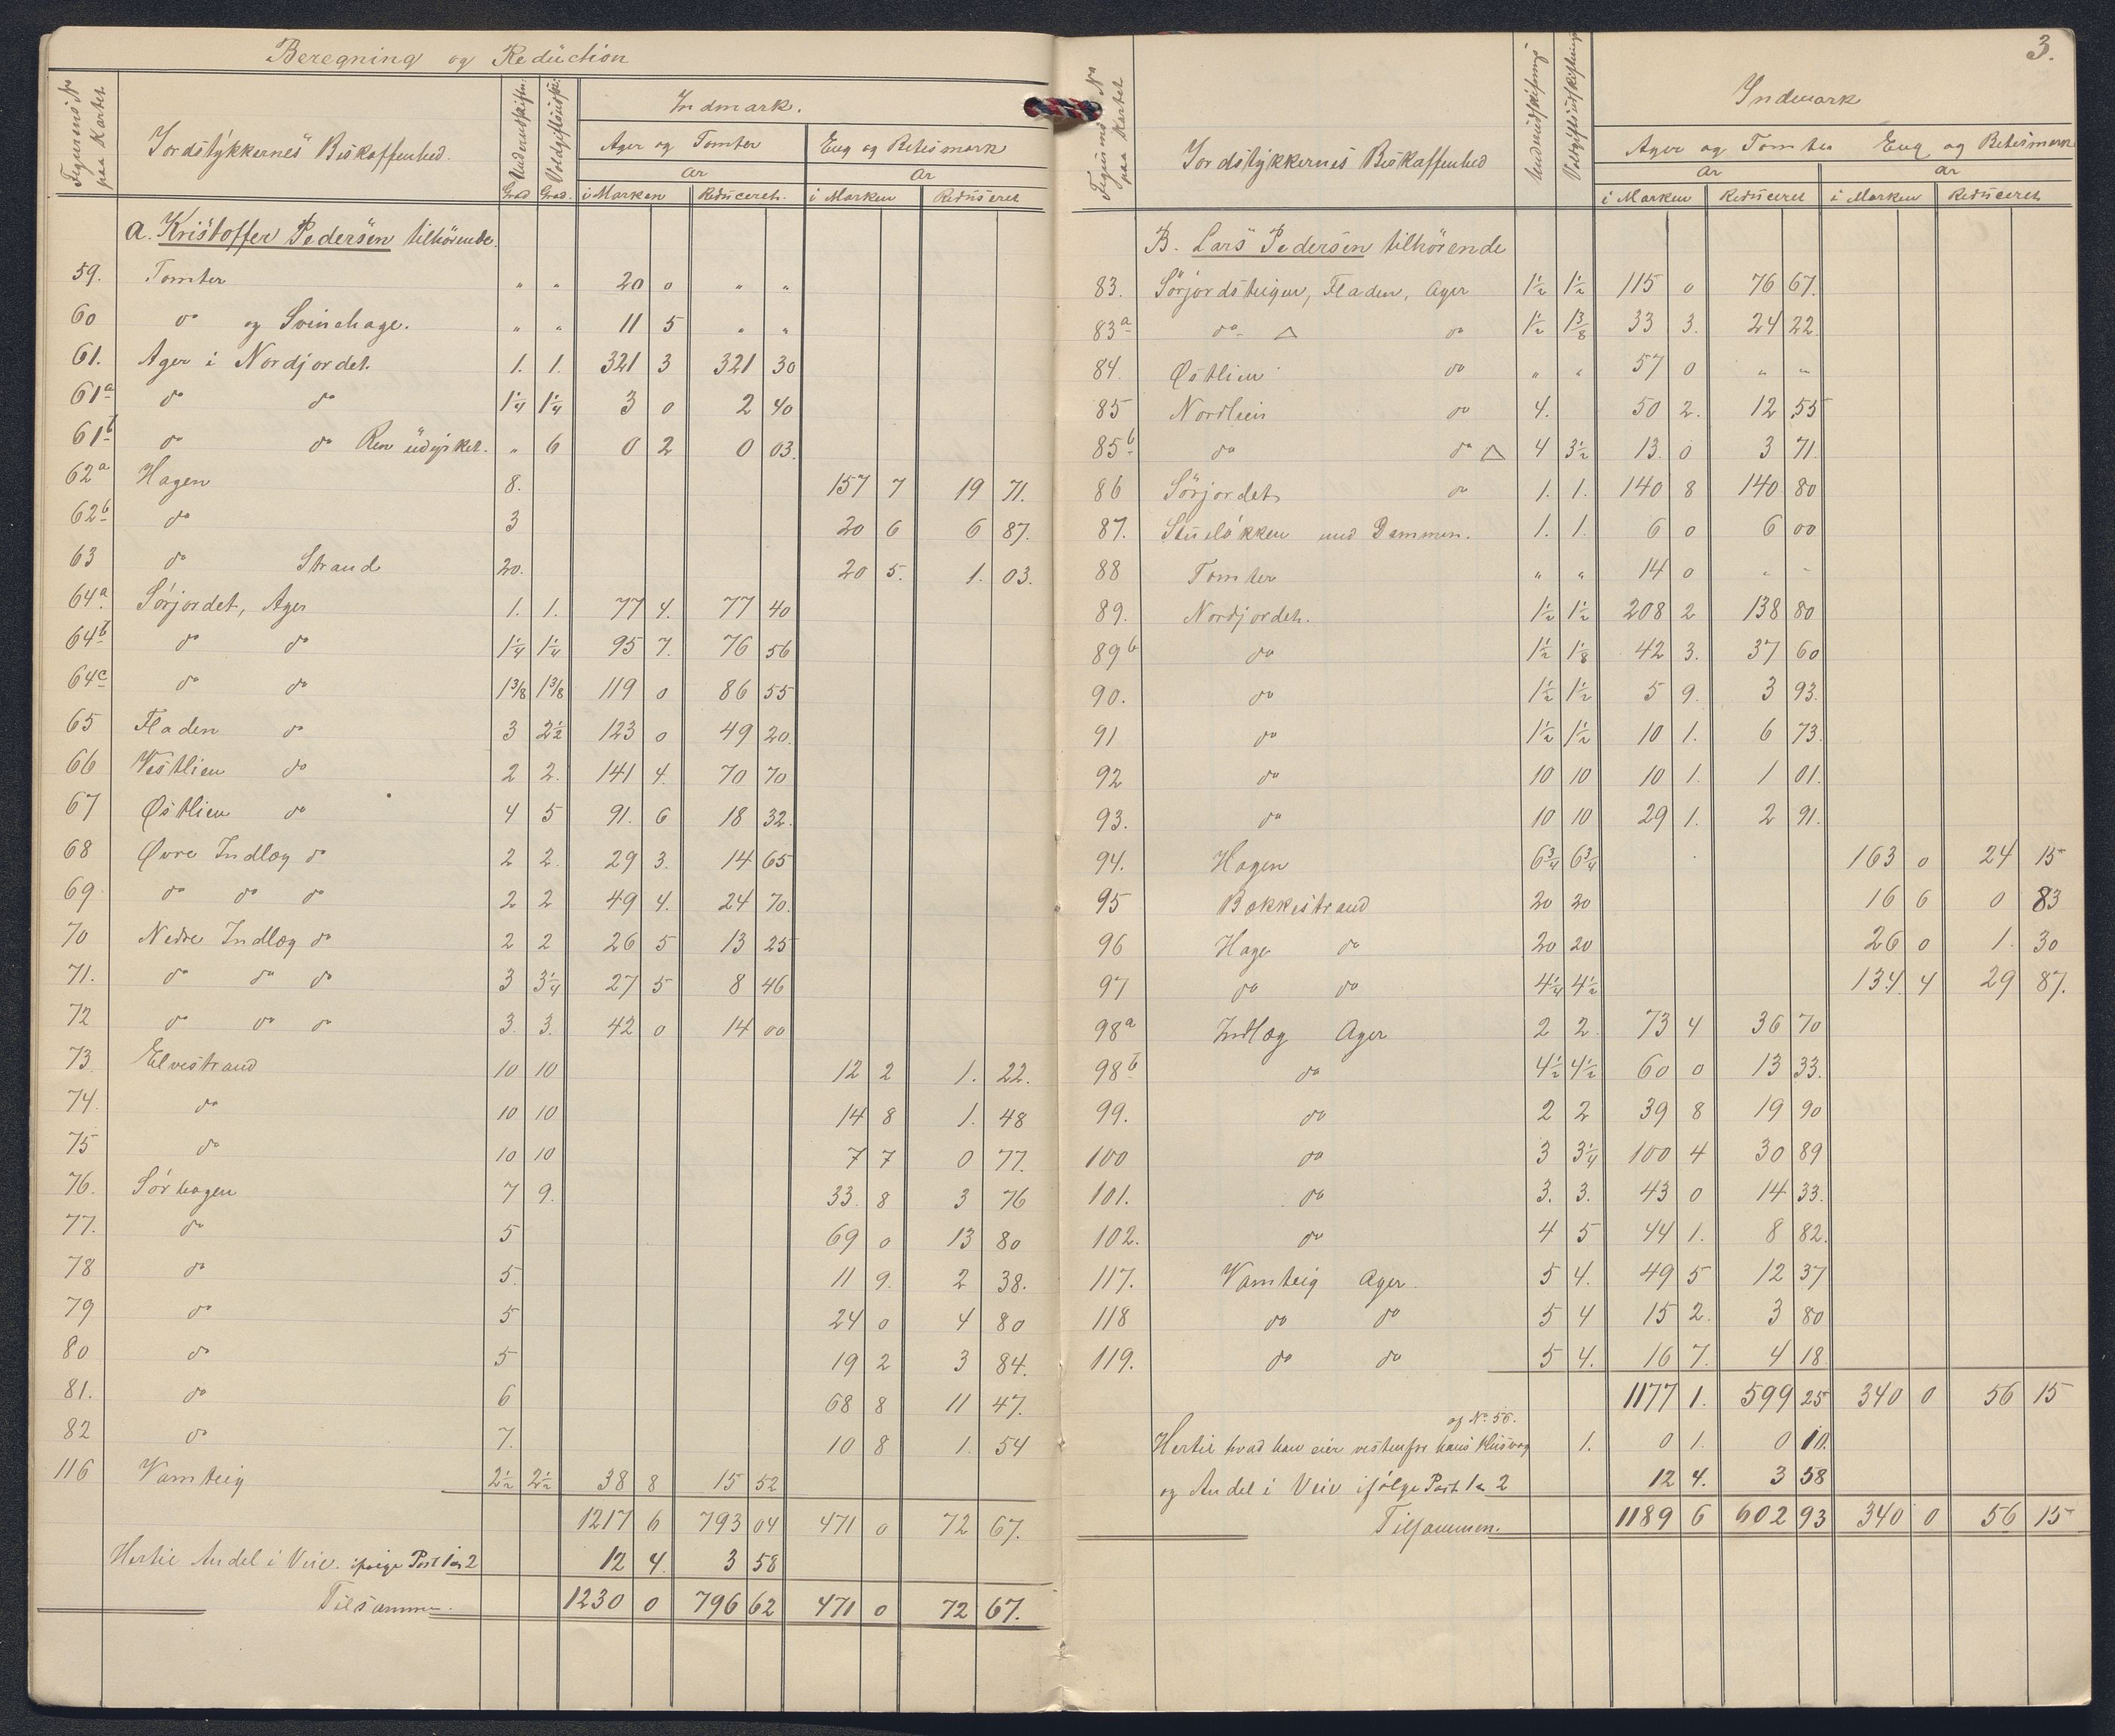 Beregning og Reduction
Figurens No paa Kartet
Jordstykkernes Beskaffenhed.
Grad Grad.
Indmark.
Ager og Tomter Eng og Beitesmark
ar ar
i Marken Reduceret. i Marken Reduceret
a. Kristoffer Pedersen tilhörende.
59. Tomter " " 20 0 " "
60 do og Svinehage. " " 11 5 " "
61. Ager i Nordjordet. 1. 1. 321 3 321 30
61a do do 1¼ 1¼ 3 0 2 40
61b do do Ren udyrket. " 6 0 2 0 03.
62a Hagen 8. 157 7 19 71.
62b do 3 20 6 6 87.
63 do Strand 20. 20 5. 1. 03.
64a. Sörjordet, Ager 1. 1. 77 4. 77 40
64b do do 1¼ 1¼ 95 7. 76 56
64c do do 1 3/8 1 3/8 119 0 86 55
65 Fladen do 3 2½ 123 0 49 20.
66 Vestlien do 2 2. 141 4. 70 70
67 Østlien do 4 5 91. 6 18 32.
68 Øvre Indlæg do 2 2. 29 3. 14 65
69 do do do 2 2 49 4. 24 70.
70 Nedre Indlæg do 2 2 26 5 13 25
71. do do do 3 3¼ 27 5 8 46
72 do do do 3. 3. 42 0 14 00
73. Elvestrand 10 10 12 2 1. 22.
74. do 10 10 14 8 1. 48
75 do 10 10 7 7 0 77.
76. Sörhagen 7 9. 33. 8 3 76
77. do 5 69 0 13 80
78 do 5. 11 9. 2 38.
79 do 5 24 0 4 80
80 do 5 19 2 3 84.
81. do 6 68 8 11 47.
82 do 7. 10 8 1. 54
116 Vamteig 2½ 2½ 38 8 15 52
1217 6 793 04 471 0 72 67.
Hertil Andel i Veie. ifölge Post 1 og 2 12 4. 3 58
Tilsammen. 1230 0 796 62 471 0 72 67.
3.
Figurens No paa Kartet
Jordstykkernes Beskaffenhed
Indmark
Ager og Tomter Eng og Beitesmark
ar ar
i Marken Reduceret i Marken Reduceret
B. Lars Pedersen tilhörende
83. Sörjordsteigen, Fladen, Ager 1½ 1½ 115 0 76 67.
83a do △ do 1½ 1 3/8 33 3. 24 22
84. Østlien do " " 57 0 " "
85 Nordlien do 4. 50 2. 12 55
85b do do △ 4 3½ 13. 0 3 71.
86 Sörjordet do 1. 1. 140 8 140 80
87. Stuelökken med Dammen. 1. 1. 6 0 6 00
88 Tomter " " 14 0 " "
89. Nordjordet. 1½ 1½ 208 2 138 80
89b do 1½ 1 1/8 42 3. 37 60
90. do 1½ 1½ 5 9. 3 93.
91 do 1½ 1½ 10 1. 6 73.
92 do 10 10 10 1. 1 01.
93. do 10 10 29 1. 2 91.
94. Hagen 6¾ 6¾ 163 0 24 15
95 Bækkestrand 20 20 16 6 0 83
96 Hage do 20 20 26 0 1. 30
97 do do 4½ 4½ 134 4 29 87.
98a Indlæg Ager 2 2. 73 4 36 70
98b do 4½ 4½ 60 0 13 33.
99. do 2 2 39 8 19 90
100 do 3 3¼ 100 4 30 89
101. do 3. 3. 43 0 14 33.
102. do 4 5 44 1. 8 82.
117. Vamteig Ager. 5 4. 49 5 12 37
118 do do 5 4 15 2. 3 80
119. do do 5 4. 16 7. 4 18
1177 1. 599 25 340 0 56 15
af No 56.
Hertil hvad han eier vestenfor hans 1. 0 1. 0 10.
og Andel i Veie ifölge Post 1 og 2 12 4. 3 58
Tilsammen. 1189 6 602 93 340 0 56 15